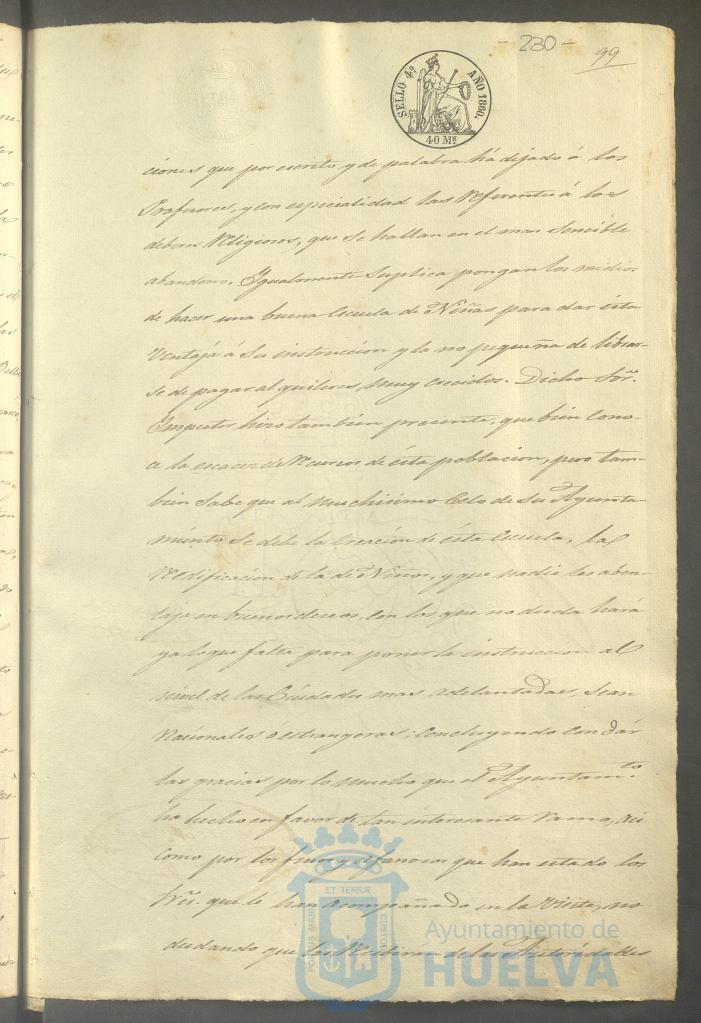 - 230 -
99
SELLO 4º AÑO 1860.
40 Ms
ciones que por escrito y de palabra há dejado á los
Profesores, y con especialidad las referentes á los
deberes religiosos, que se hallan en el mas sencible
abandono. Igualmente suplica pongan los medios
de hacer una buena Escuela de Niñas para dar esta
ventajá á su instruccion y la no pequeña de librar-
se de pagar alquileres, muy crecidos. Dicho Sor.
Inspector hizo tambien presente, que bien cono-
ce la escacez de recursos de ésta poblacion, pero tam-
bien sabe que al muchisimo celo de su Ayunta-
miento se debe la creacion de ésta Escuela, la
redificacion de la de Niños, y que nadie les aben-
taja en buenos deseos, con los que no duda hará
ya lo que falta para poner la instruccion al
nivel de las Ciudades mas adelantadas, sean
Nacionales ó estrangeras; concluyendo con dár
las gracias por lo mucho que el Ayuntamto
ha hecho en favor de tan interesante ramo, asi
como por los finos y afanosos que han estado los
Sres. que le han acompañado en la Visita, no
dudando que las recibirán de las Autoridades
PORTUS MARIS ET TERRÆ CUSTODIA
Ayuntamiento de
HUELVA